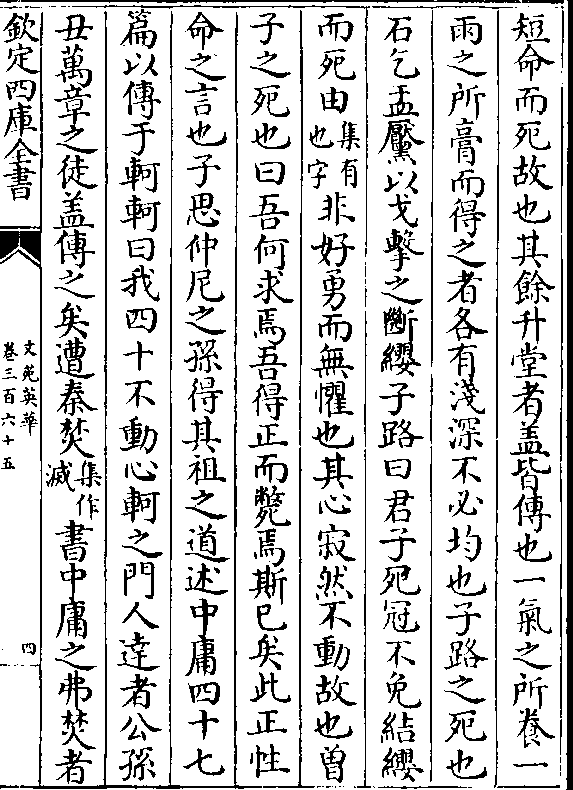 短命而死故也其餘升堂者盖皆傳也一氣之所養一
雨之所膏而得之者各有淺深不必均也子路之死也
石乞盂黶以戈擊之斷纓子路曰君子死冠不免結纓
而死由集有也字非好勇而無懼也其心寂然不動故也曽
子之死也曰吾何求焉吾得正而斃焉斯已矣此正性
命之言也子思仲尼之孫得其祖之道述中庸四十七
篇以傳于軻軻曰我四十不動心軻之門人達者公孫
丑萬章之徒盖傳之矣遭秦焚集作滅書中庸之弗焚者
欽定四庫全書
文苑英華
卷三百六十五
四